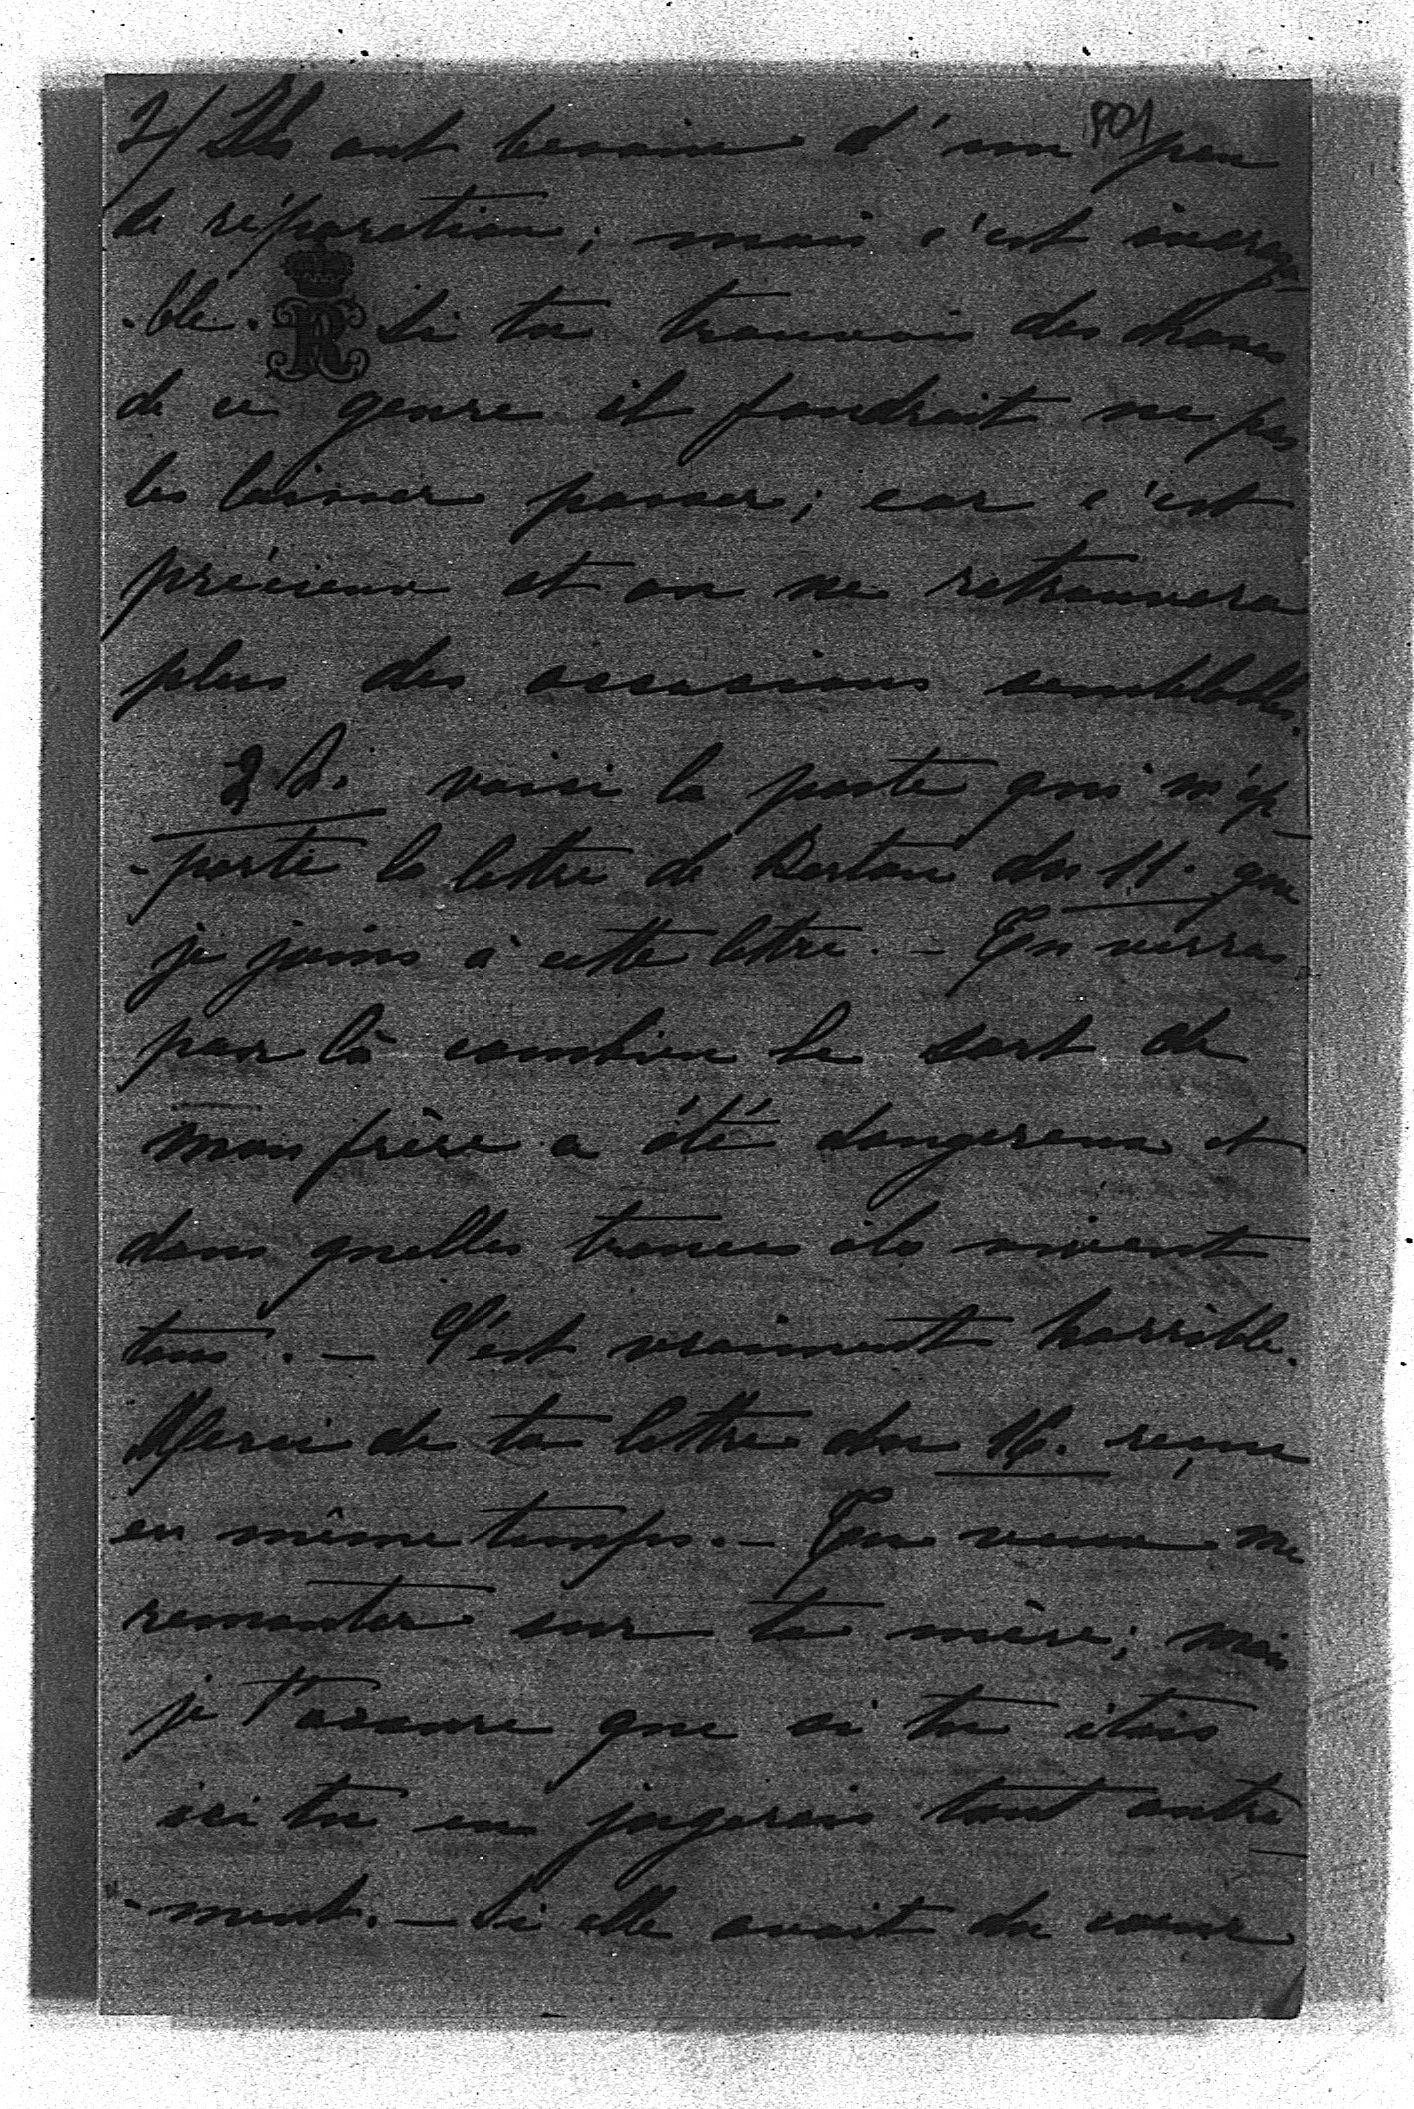 2/ Ils ont besoin d'un peu 801
de réparation; mais c'est incroya
-ble. R Si tu trouvais des choses
de ce genre il faudrait ne pas
les laisser passer; car c'est
précieux et on ne retrouvera
plus des occasions semblables.
2 h. voici la poste qui m'ap
-porte la lettre de du 11. que
je joins à cette lettre. - Tu verras
par là combien le sort de
mon frère a été dangereux et
dans quelles trances ils vivent
tous. - C'est vraiment horrible.
Merci de ta lettre du 16. reçue
en même temps. - Tu veux me
remonter sur ta mère; mais
je t'assure que si tu étais
ici tu en jugerais tout autre
-ment. - Si elle avait du coeur